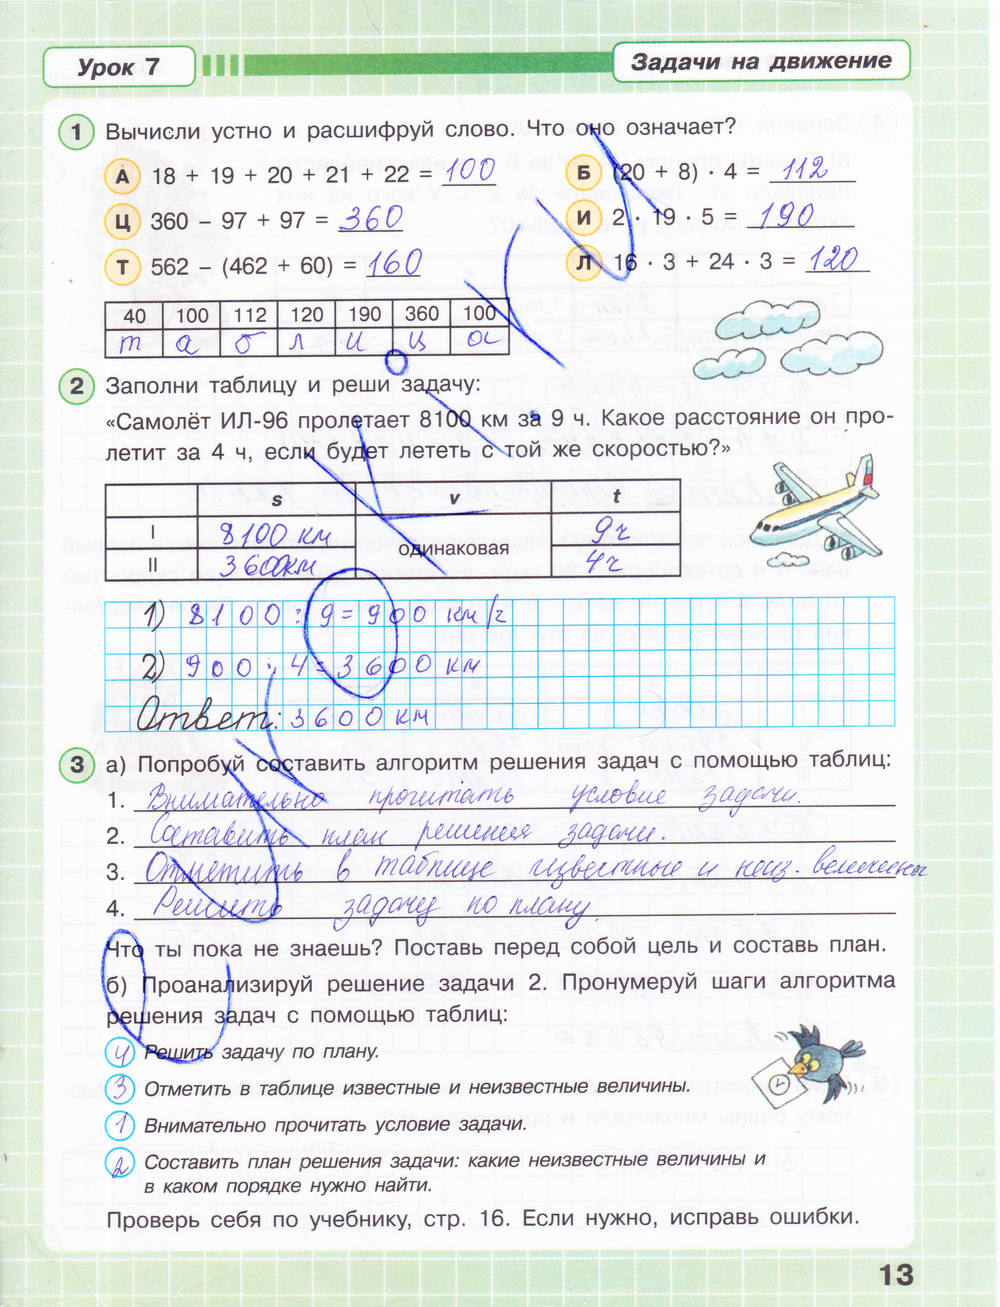 Урок 7
Задачи на движение
1 Вычисли устно и расшифруй слово. Что оно означает?
А 18 + 19 + 20 + 21 + 22 = 100
Б (20 + 8) · 4 = 112
Ц 360 – 97 + 97 = 360
И 2 · 19 · 5 = 190
Т 562 – (462 + 60) = 160
Л 16 · 3 + 24 · 3 = 120
40 100 112 120 190 360 100
т а б л и ц а
2 Заполни таблицу и реши задачу:
«Самолёт ИЛ-96 пролетает 8100 км за 9 ч. Какое расстояние он про-
летит за 4 ч, если будет лететь с той же скоростью?»
s v t
I 8100 км 9ч
одинаковая
II 3600км 4ч
1) 8100 : 9 = 900 км/г
2) 900 · 4 = 3600 км
Ответ: 3600 км
3 а) Попробуй составить алгоритм решения задач с помощью таблиц:
1. Внимательно прочитать условие задачи.
2. Составить план решения задачи.
3. Отметить в таблице известные и неиз. величины
4. Решить задачу по плану.
Что ты пока не знаешь? Поставь перед собой цель и составь план.
б) Проанализируй решение задачи 2. Пронумеруй шаги алгоритма
решения задач с помощью таблиц:
4 Решить задачу по плану.
3 Отметить в таблице известные и неизвестные величины.
1 Внимательно прочитать условие задачи.
2 Составить план решения задачи: какие неизвестные величины и
в каком порядке нужно найти.
Проверь себя по учебнику, стр. 16. Если нужно, исправь ошибки.
13